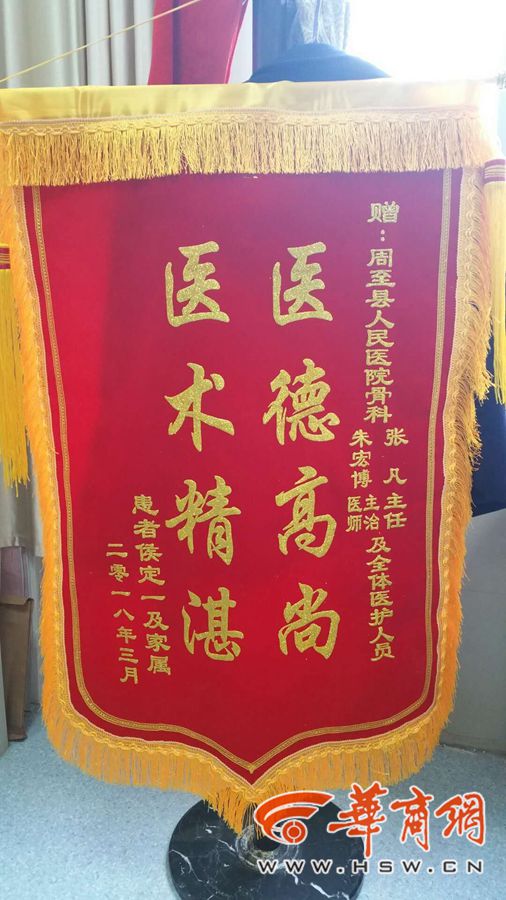 赠：周至县人民医院骨科 张凡主任
朱宏博主治医师 及全体医护人员
医德高尚
医术精湛
患者侯定一及家属
二零一八年三月
華商網
WWW.HSW.CN